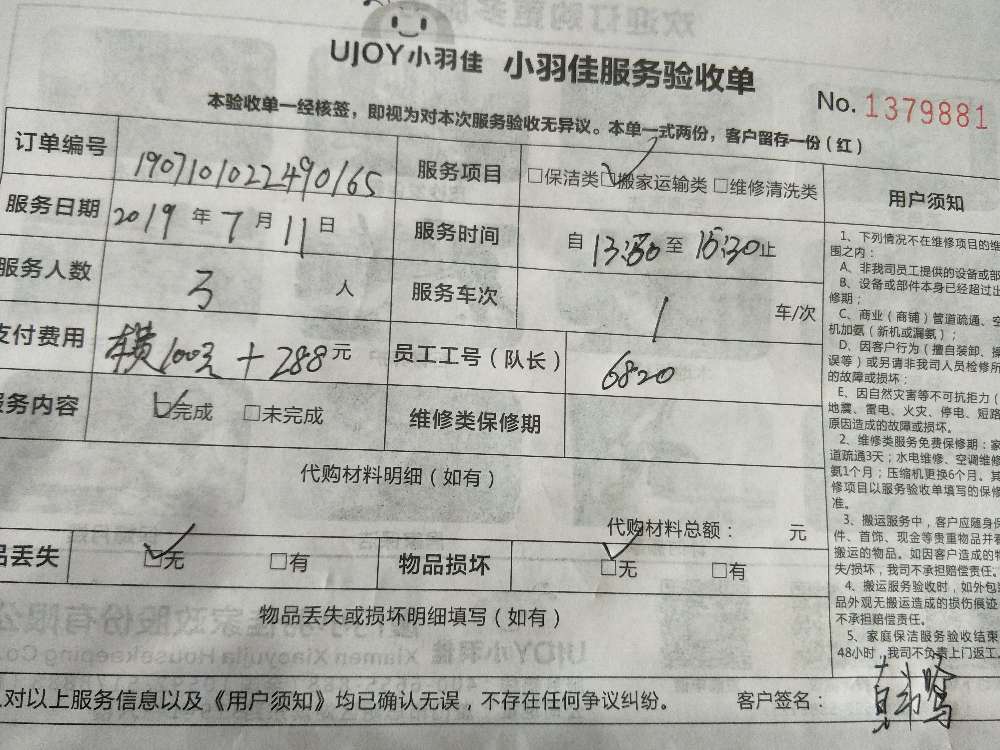 UJOY小羽佳 小羽佳服务验收单
No. 1379881
本验收单一经核签，即视为对本次服务验收无异议。本单一式两份，客户留存一份（红）
订单编号 190710102249０165 服务项目 □保洁类 □搬家运输类 □维修清洗类
服务日期 2019 年 7 月 11 日 服务时间 自 至 15:30 止
服务人数 3 人 服务车次 1 车/次
支付费用 100元 + 288 元 员工工号（队长） 6820
服务内容 □完成 □未完成 维修类保修期
代购材料明细（如有）
代购材料总额： 元
品丢失 □无 □有 物品损坏 □无 □有
物品丢失或损坏明细填写（如有）
对以上服务信息以及《用户须知》均已确认无误，不存在任何争议纠纷。 客户签名：
用户须知
1、下列情况不在维修项目的维
围之内：
A、非我司员工提供的设备或部
B、设备或部件本身已经超过出
修期；
C、商业（商铺）管道疏通、空
机加氨（新机或漏氨）；
D、因客户行为（擅自装卸、操
误等）或另请非我司人员检修所
的故障或损坏；
E、因自然灾害等不可抗拒力（
地震、雷电、火灾、停电、短路
原因造成的故障或损坏。
2、维修类服务免费保修期：家
道疏通3天；水电维修、空调维修
氨1个月；压缩机更换6个月。其
修项目以服务验收单填写的保修
准。
3、搬运服务中，客户应随身保
件、首饰、现金等贵重物品并看
搬运的物品。如因客户造成的物
失/损坏，我司不承担赔偿责任。
4、搬运服务验收时，如外包装
品外观无搬运造成的损伤痕迹
不承担赔偿责任。
5、家庭保洁服务验收结束
48小时，我司不负责上门返工。